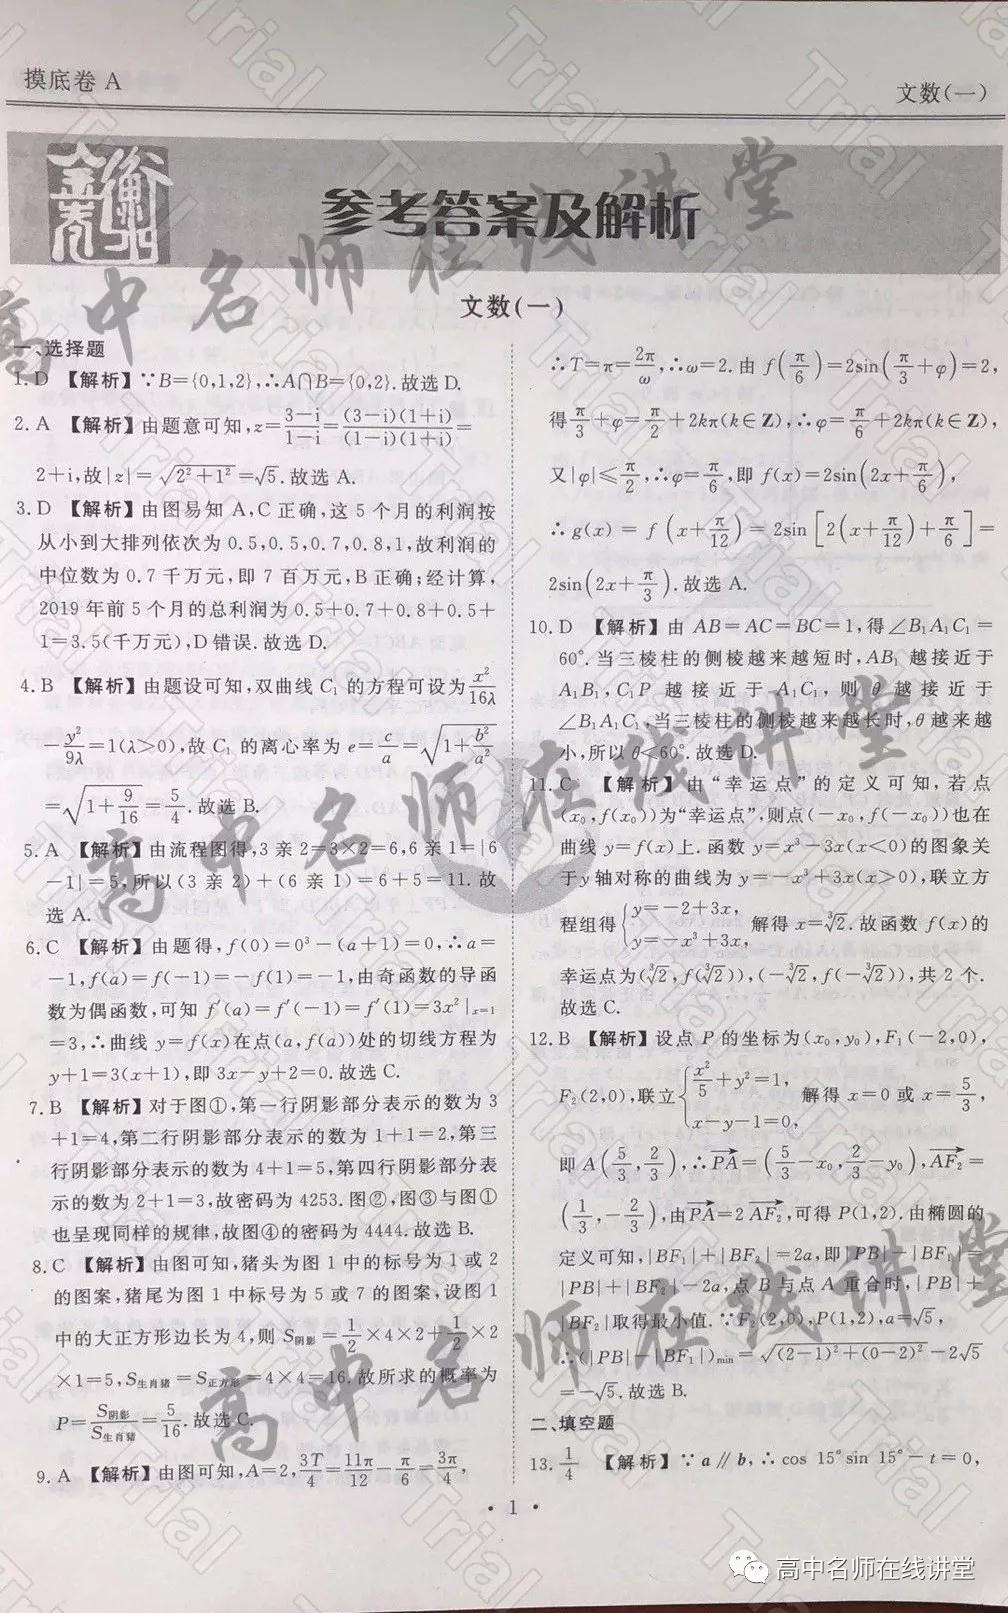 摸底卷 A
文数(一)
金衡卷
参考答案及解析
文数(一)
一、选择题
1. D 【解析】∵B={0,1,2},∴A∩B={0,2}.故选 D.
2. A 【解析】由题意可知,z=\frac{3-i}{1-i}=\frac{(3-i)(1+i)}{(1-i)(1+i)}=
2+i,故|z|=\sqrt{2^2+1^2}=\sqrt{5}.故选 A.
3. D 【解析】由图易知 A,C 正确,这 5 个月的利润按
从小到大排列依次为 0.5,0.5,0.7,0.8,1,故利润的
中位数为 0.7 千万元,即 7 百万元,B 正确;经计算,
2019 年前 5 个月的总利润为 0.5+0.7+0.8+0.5+
1=3.5(千万元),D 错误.故选 D.
4. B 【解析】由题设可知,双曲线 C₁ 的方程可设为\frac{x^2}{16λ}
-\frac{y^2}{9λ}=1(λ>0),故 C₁ 的离心率为 e=\frac{c}{a}=\sqrt{1+\frac{b^2}{a^2}}
=\sqrt{1+\frac{9}{16}}=\frac{5}{4}.故选 B.
5. A 【解析】由流程图得,3 亲 2=3×2=6,6 亲 1=|6
-1|=5,所以(3 亲 2)+(6 亲 1)=6+5=11.故
选 A.
6. C 【解析】由题得,f(0)=0³-(a+1)=0,∴a=
-1,f(a)=f(-1)=-f(1)=-1,由奇函数的导函
数为偶函数,可知 f′(a)=f′(-1)=f′(1)=3x²|ₓ₌₁
=3,∴曲线 y=f(x)在点(a,f(a))处的切线方程为
y+1=3(x+1),即 3x-y+2=0.故选 C.
7. B 【解析】对于图①,第一行阴影部分表示的数为 3
+1=4,第二行阴影部分表示的数为 1+1=2,第三
行阴影部分表示的数为 4+1=5,第四行阴影部分表
示的数为 2+1=3,故密码为 4253.图②,图③与图①
也呈现同样的规律,故图④的密码为 4444.故选 B.
8. C 【解析】由图可知,猪头为图 1 中的标号为 1 或 2
的图案,猪尾为图 1 中标号为 5 或 7 的图案,设图 1
中的大正方形边长为 4,则 S阴影=\frac{1}{2}×4×2+\frac{1}{2}×2
×1=5,S生肖猪=S正方形=4×4=16.故所求的概率为
P=\frac{S阴影}{S生肖猪}=\frac{5}{16}.故选 C.
9. A 【解析】由图可知,A=2,\frac{3T}{4}=\frac{11π}{12}-\frac{π}{6}=\frac{3π}{4},
∴T=π=\frac{2π}{ω},∴ω=2.由 f(\frac{π}{6})=2sin(\frac{π}{3}+φ)=2,
得\frac{π}{3}+φ=\frac{π}{2}+2kπ(k∈Z),∴φ=\frac{π}{6}+2kπ(k∈Z),
又|φ|≤\frac{π}{2},∴φ=\frac{π}{6},即 f(x)=2sin(2x+\frac{π}{6}),
∴g(x)=f(x+\frac{π}{12})=2sin[2(x+\frac{π}{12})+\frac{π}{6}]=
2sin(2x+\frac{π}{3}).故选 A.
10. D 【解析】由 AB=AC=BC=1,得∠B₁A₁C₁=
60°.当三棱柱的侧棱越来越短时,AB₁ 越接近于
A₁B₁,C₁P 越接近于 A₁C₁,则 θ 越接近于
∠B₁A₁C₁,当三棱柱的侧棱越来越长时,θ 越来越
小,所以 θ<60°.故选 D.
11. C 【解析】由“幸运点”的定义可知,若点
(x₀,f(x₀))为“幸运点”,则点(-x₀,f(-x₀))也在
曲线 y=f(x)上.函数 y=x³-3x(x<0)的图象关
于 y 轴对称的曲线为 y=-x³+3x(x>0),联立方
程组得{y=-2+3x, y=-x³+3x, 解得 x=\sqrt[3]{2}.故函数 f(x)的
幸运点为(\sqrt[3]{2},f(\sqrt[3]{2})),(-\sqrt[3]{2},f(-\sqrt[3]{2})),共 2 个.
故选 C.
12. B 【解析】设点 P 的坐标为(x₀,y₀),F₁(-2,0),
F₂(2,0),联立{\frac{x^2}{5}+y²=1, x-y-1=0, 解得 x=0 或 x=\frac{5}{3},
即 A(\frac{5}{3},\frac{2}{3}),∴\overrightarrow{PA}=(\frac{5}{3}-x₀,\frac{2}{3}-y₀),\overrightarrow{AF₂}=
(\frac{1}{3},-\frac{2}{3}),由\overrightarrow{PA}=2\overrightarrow{AF₂},可得 P(1,2).由椭圆的
定义可知,|BF₁|+|BF₂|=2a,即|PB|-|BF₁|=
|PB|+|BF₂|-2a,点 B 与点 A 重合时,|PB|+
|BF₂|取得最小值.∵F₂(2,0),P(1,2),a=\sqrt{5},
∴(|PB|-|BF₁|)min=\sqrt{(2-1)²+(0-2)²}-2\sqrt{5}
=-\sqrt{5}.故选 B.
二、填空题
13. \frac{1}{4} 【解析】∵a∥b,∴cos 15°sin 15°-t=0,
• 1 •
高中名师在线讲堂
高中名师在线讲堂
高中名师在线讲堂
高中名师在线讲堂
Trial